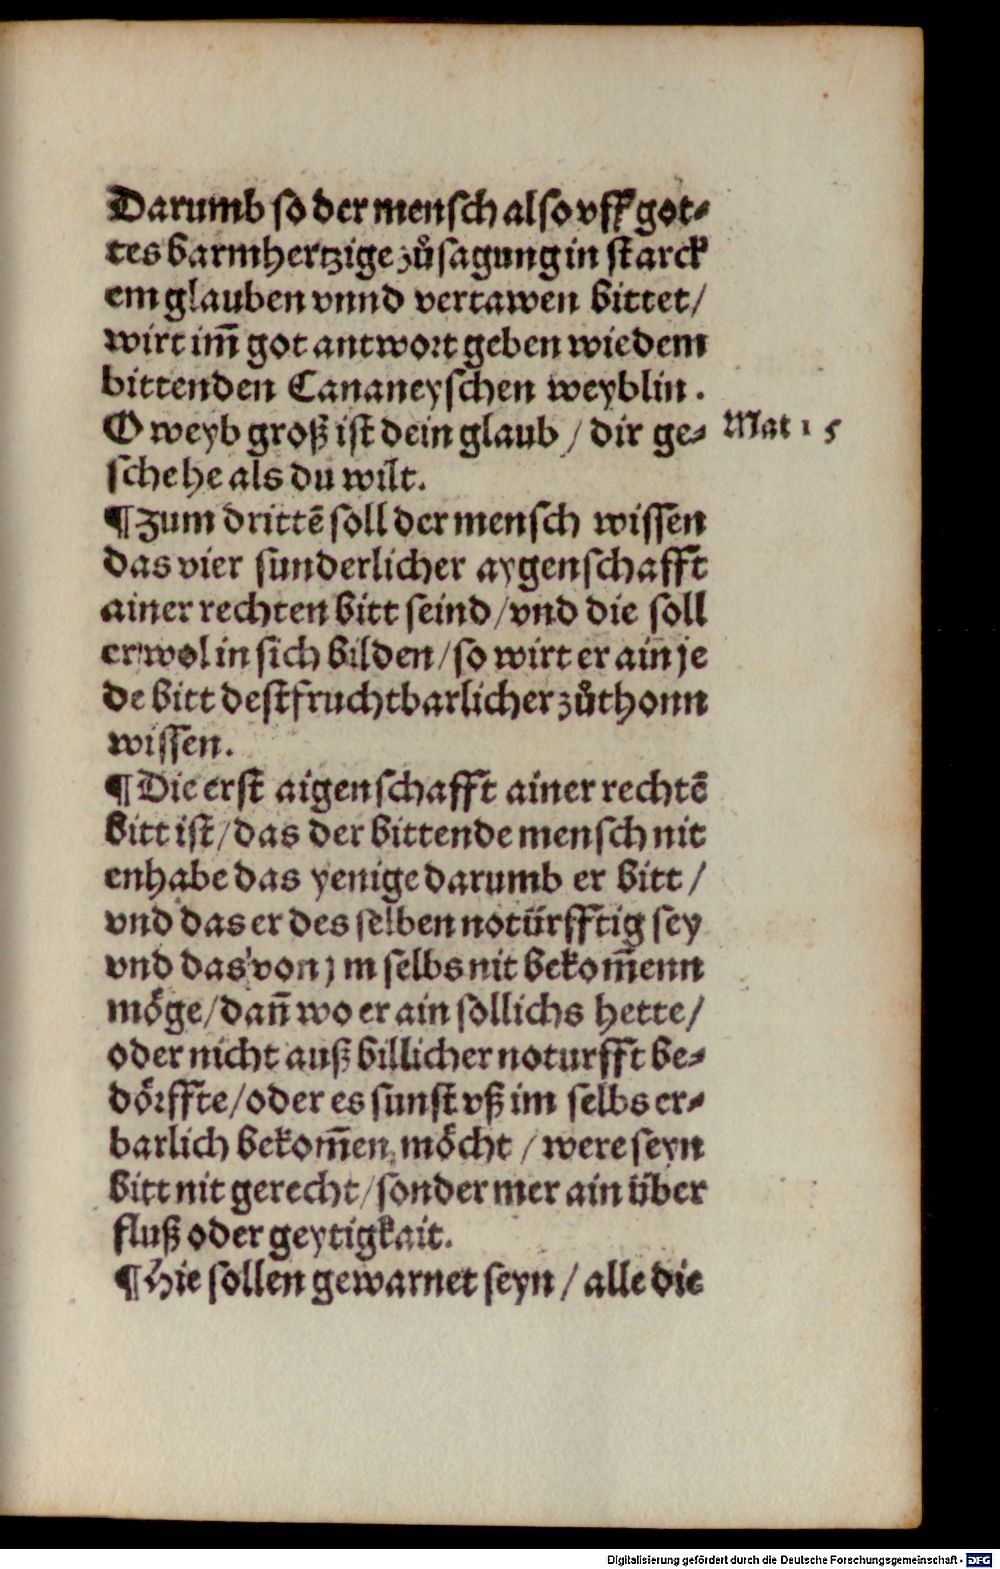 Darumb so der mensch also vff got⸗
tes barmhertzige zůsagung in starck
em glauben vnnd vertawen bittet/
wirt im̃ got antwort geben wie dem
bittenden Cananeyschen weyblin.
O weyb groß ist dein glaub / dir ge⸗ Mat 15
schehe als du wilt.
¶Zum drittẽ soll der mensch wissen
das vier sunderlicher aygenschafft
ainer rechten bitt seind/vnd die soll
er wol in sich bilden/so wirt er ain je
de bitt dest fruchtbarlicher zůthonn
wissen.
¶Die erst aigenschafft ainer rechtẽ
bitt ist/das der bittende mensch nit
enhabe das yenige darumb er bitt/
vnd das er des selben notürfftig sey
vnd das von jm selbs nit bekom̃enn
möge/dan̄ wo er ain sollichs hette/
oder nicht auß billicher noturfft be⸗
dörffte/oder es sunst vß im selbs er⸗
barlich bekom̃en möcht / were seyn
bitt nit gerecht/sonder mer ain über
fluß oder geytigkait.
¶Hie sollen gewarnet seyn / alle die
Digitalisierung gefördert durch die Deutsche Forschungsgemeinschaft - DFG